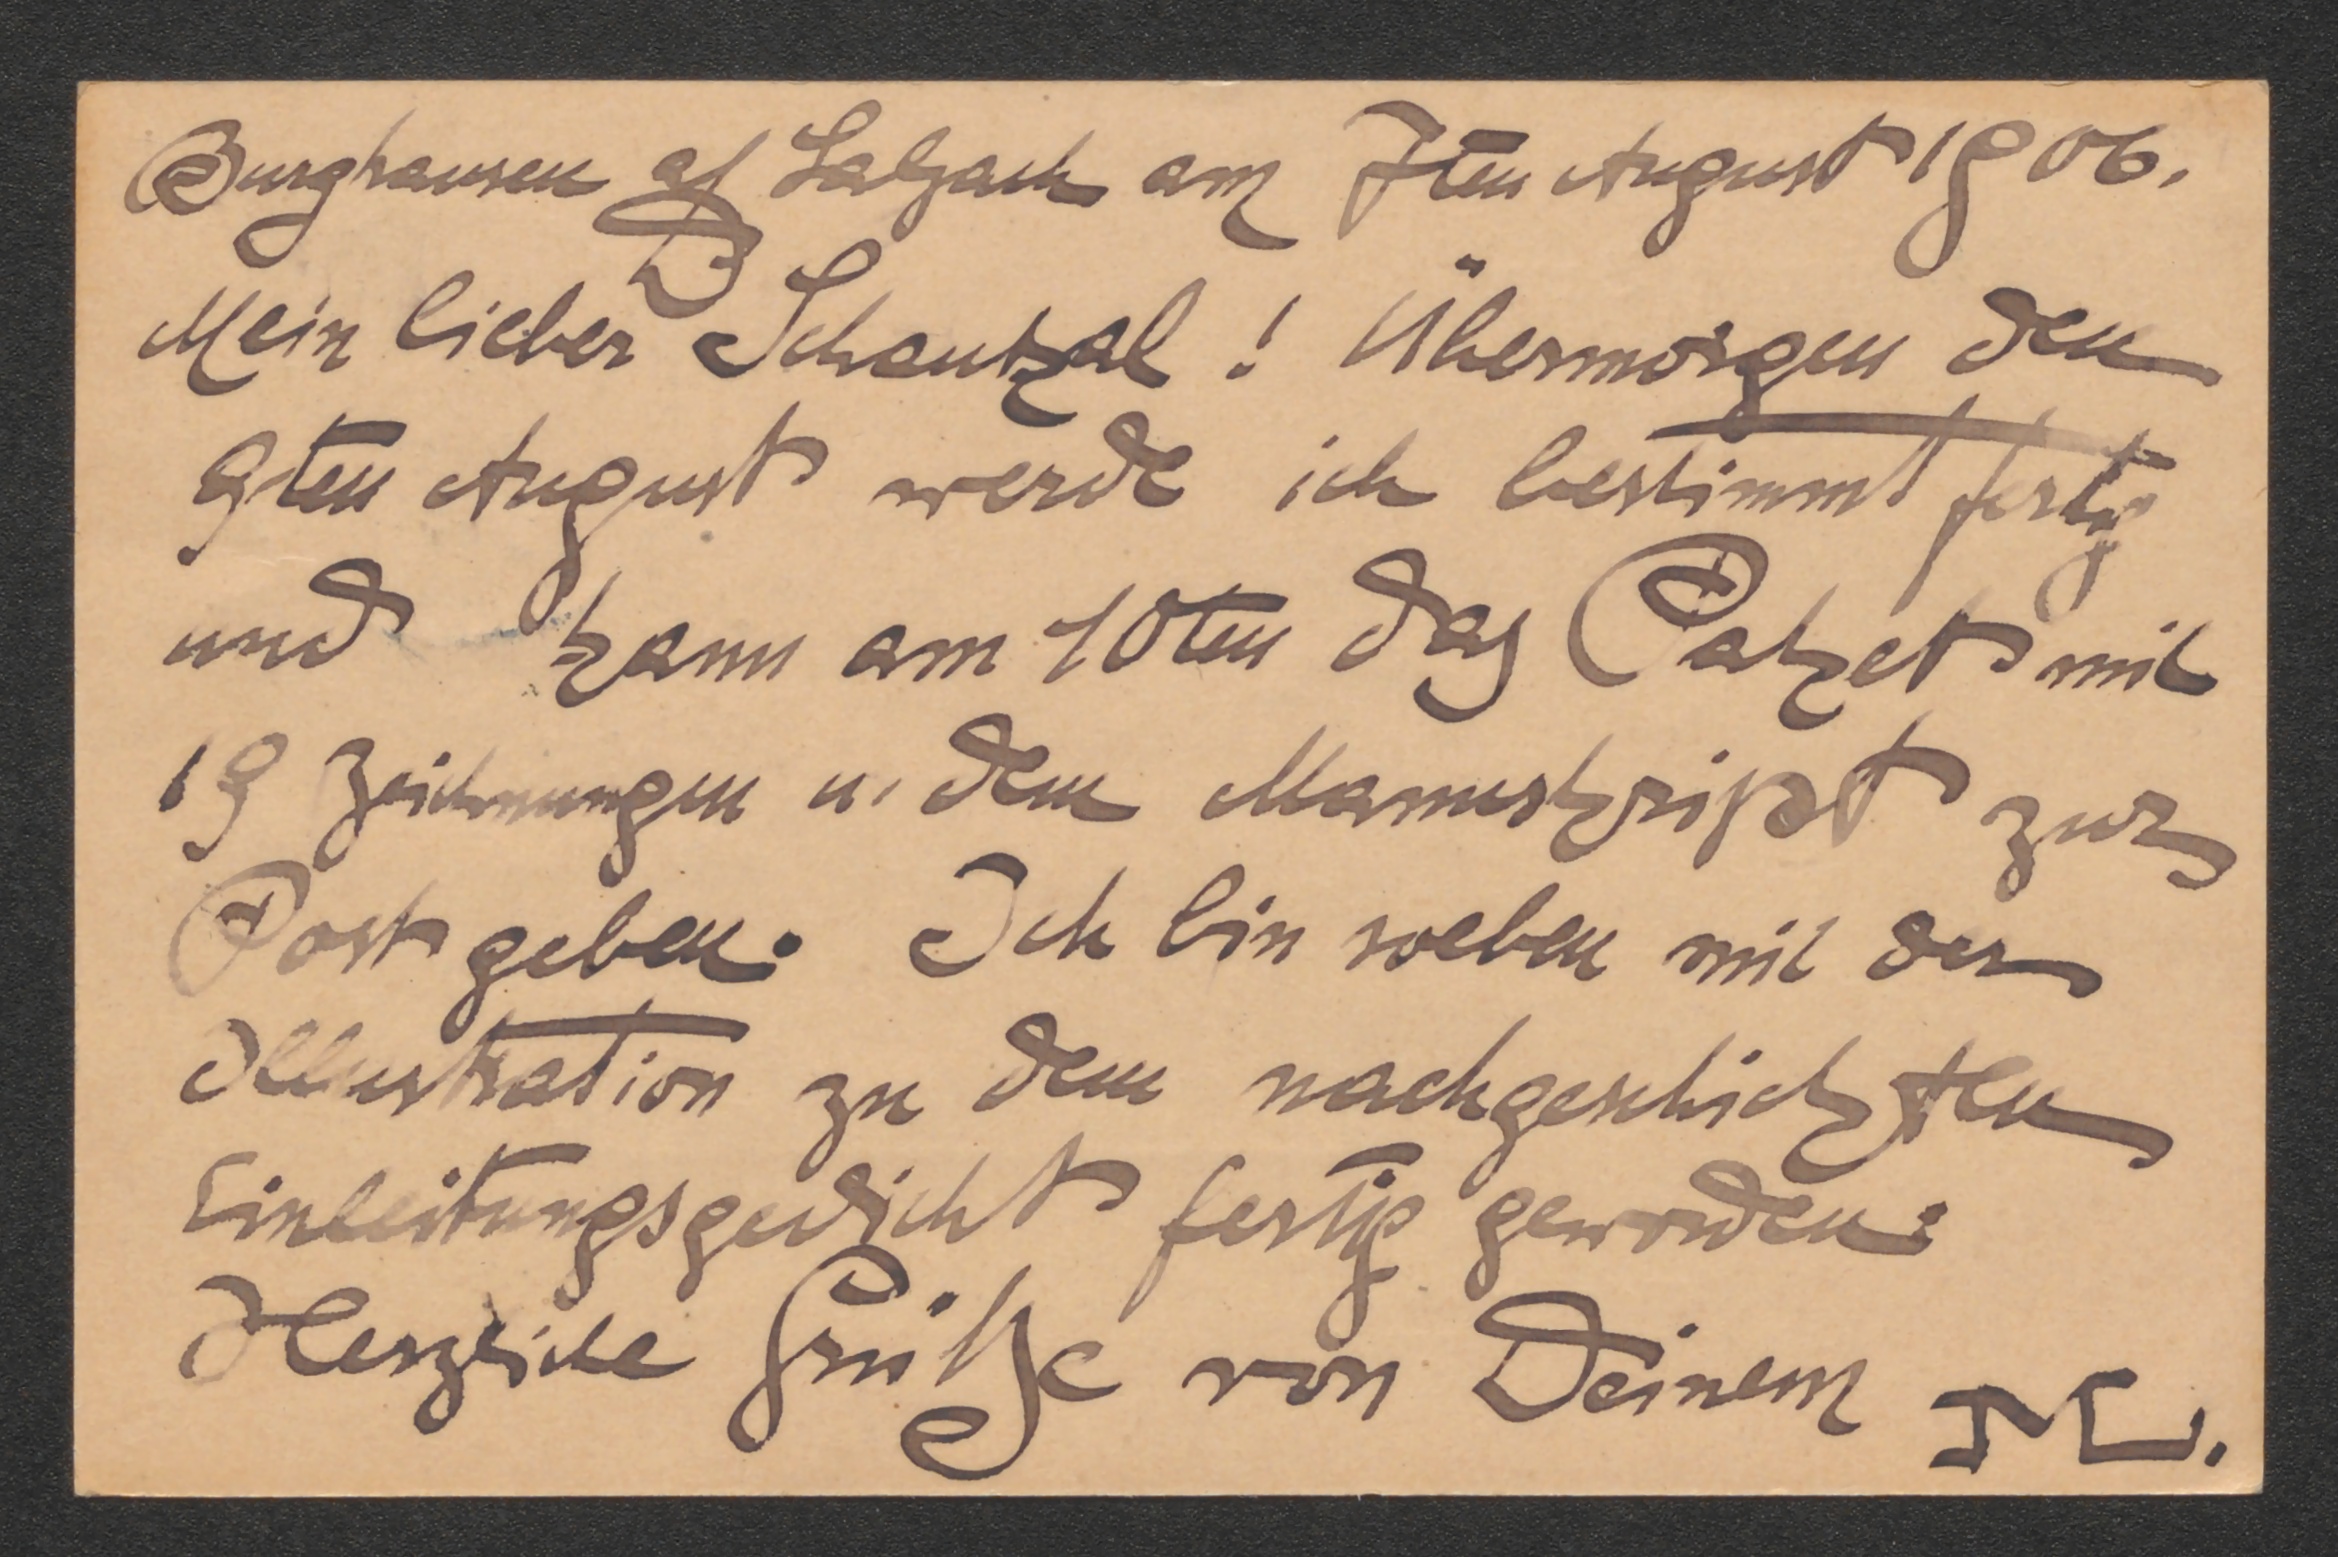 Burghausen a/ Salzach am 7ten August 1906.
Mein lieber Schaukal! Übermorgen den
9ten August werde ich bestimmt fertig
und kann am 10ten das Paket mit
19 Zeichnungen u. dem Manuskript zur
Post geben. Ich bin soeben mit der
Illustration zu dem nachgeschickten
Einleitungsgedicht fertig geworden.
Herzliche Grüße von Deinem M.